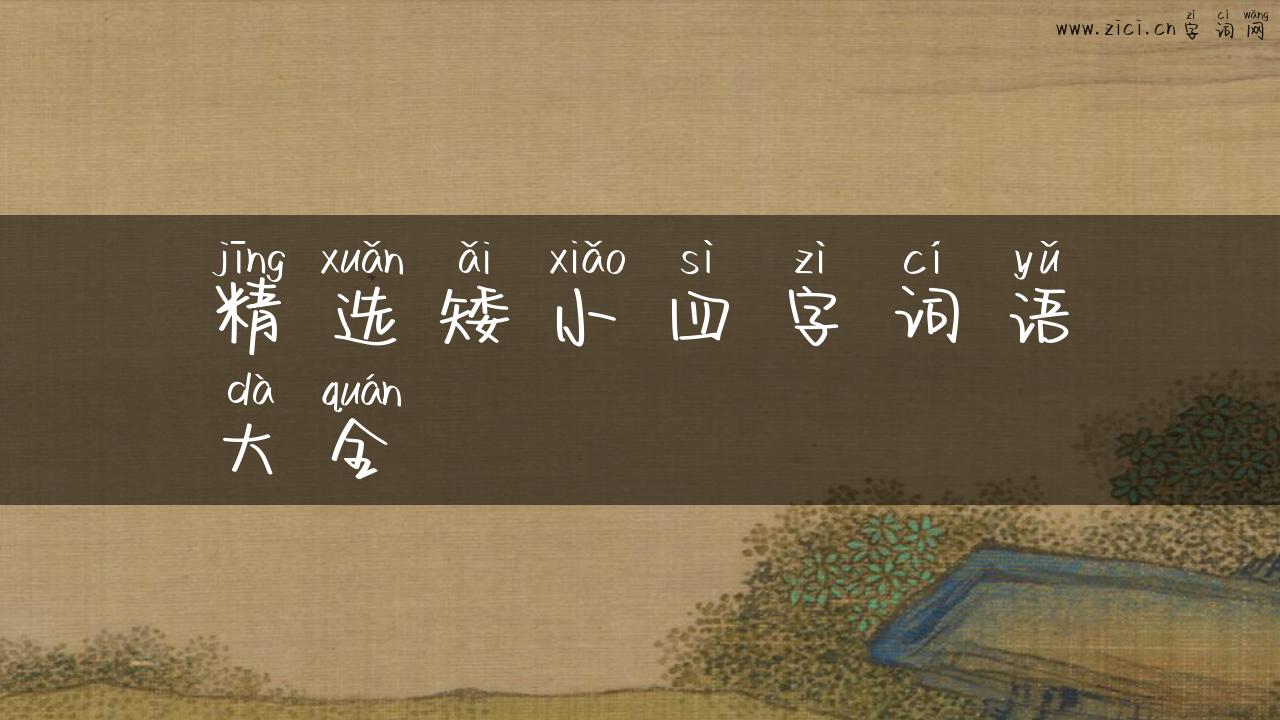 zì cí wǎng
www.zici.cn 字词网
jīng xuǎn ǎi xiǎo sì zì cí yǔ
精选矮小四字词语
dà quán
大全